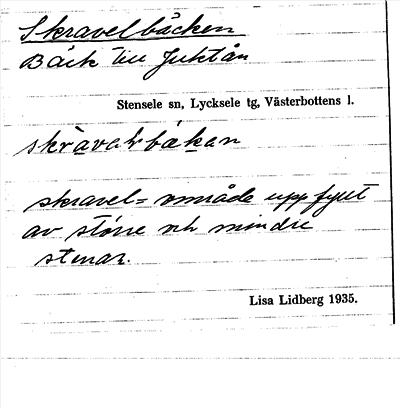 Skravelbäcken
Bäck till Juktån
Stensele sn, Lycksele tg, Västerbottens l.
skravel= område uppfyllt
av större och mindre
stenar.
Lisa Lidberg 1935.